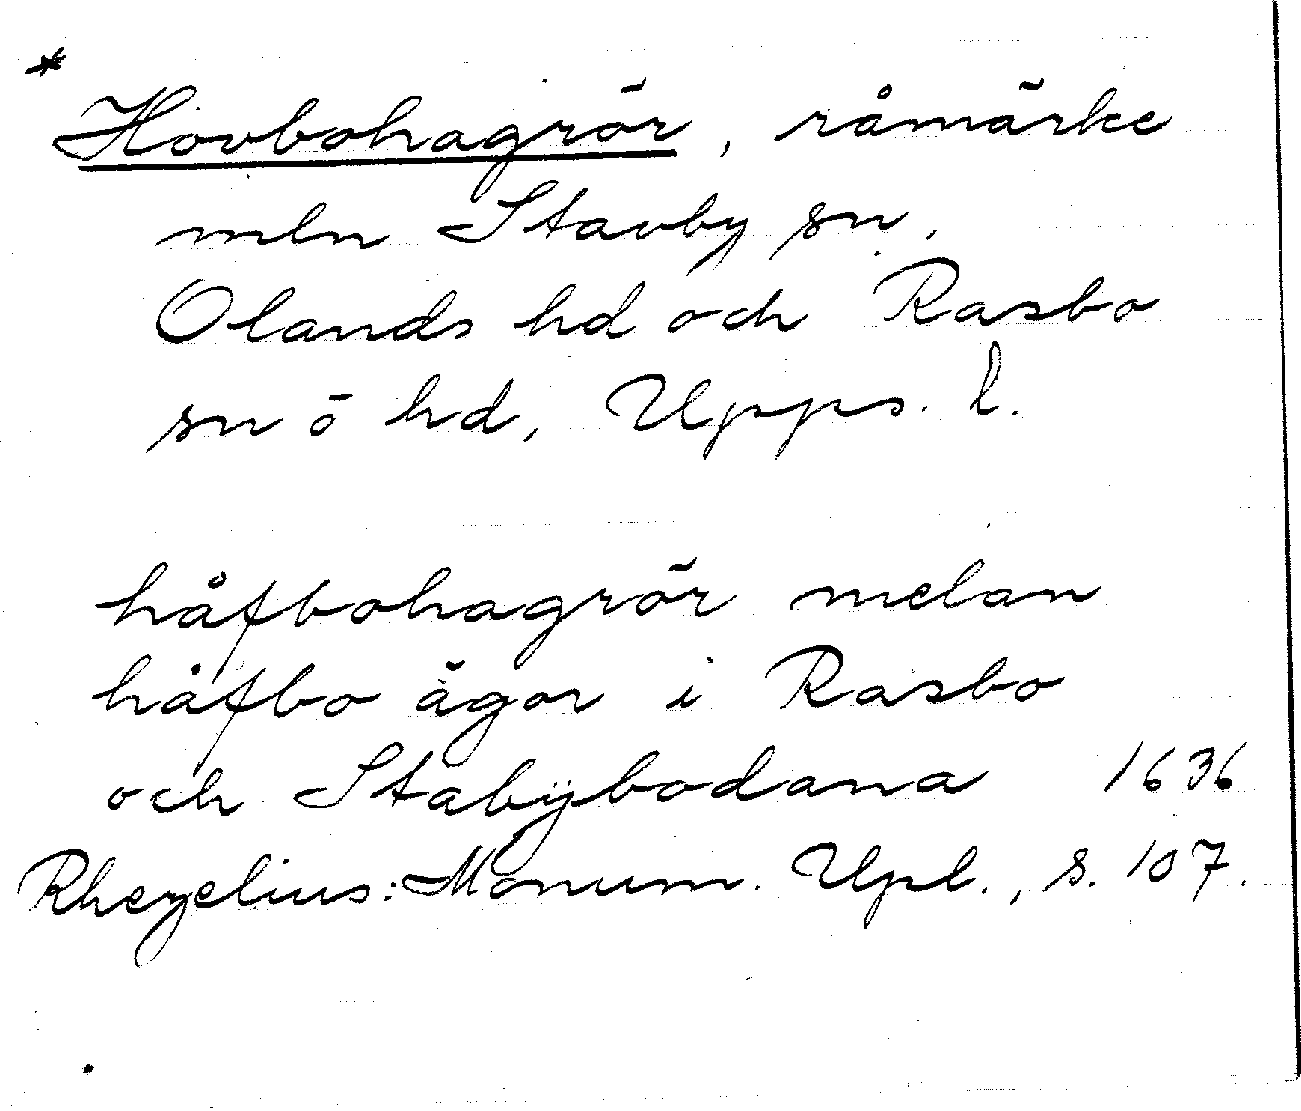 * Hovbohagrör, råmärke
mln Stavby sn,
Olands hd och Rasbo
sn o hd, Upps. l.
håfbohagrör melan
håfbo ägor i Rasbo
och Stabÿbodana 1636
Rhezelius: Monum. Upl., s. 107.